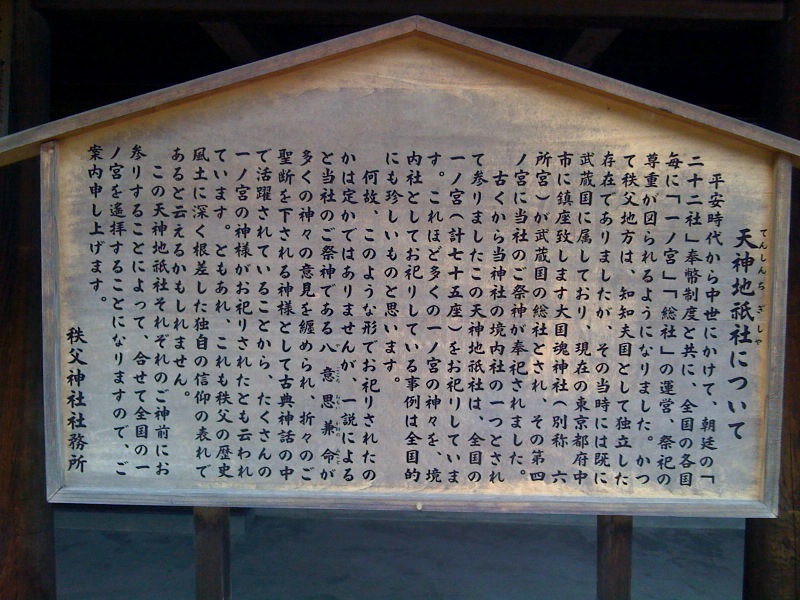 てんしんちぎしゃ
天神地祇社について
平安時代から中世にかけて、朝廷の「
二十二社」奉幣制度と共に、全国の各国
毎に「一ノ宮」「総社」の運営、祭祀の
尊重が図られるようになりました。かつ
て秩父地方は、知知夫国として独立した
存在でありましたが、その当時には既に
武蔵国に属しており、現在の東京都府中
市に鎮座致します大国魂神社(別称 六
所宮)が武蔵国の総社とされ、その第四
ノ宮に当社のご祭神が奉祀されました。
古くから当神社の境内社の一つとされ
て参りましたこの天神地祇社は、全国の
一ノ宮(計七十五座)をお祀りしていま
す。これほど多くの一ノ宮の神々を、境
内社としてお祀りしている事例は全国的
にも珍しいものと思います。
何故、このような形でお祀りされたの
かは定かではありませんが、一説による
と当社のご祭神である八意思兼命が
多くの神々の意見を纏められ、折々のご
聖断を下される神様として古典神話の中
で活躍されていることから、たくさんの
一ノ宮の神様がお祀りされたとも云われ
ています。ともあれ、これも秩父の歴史
風土に深く根差した独自の信仰の表れで
あると云えるかもしれません。
この天神地祇社それぞれのご神前にお
参りすることによって、合せて全国の一
ノ宮を遙拝することになりますので、ご
案内申し上げます。
秩父神社社務所